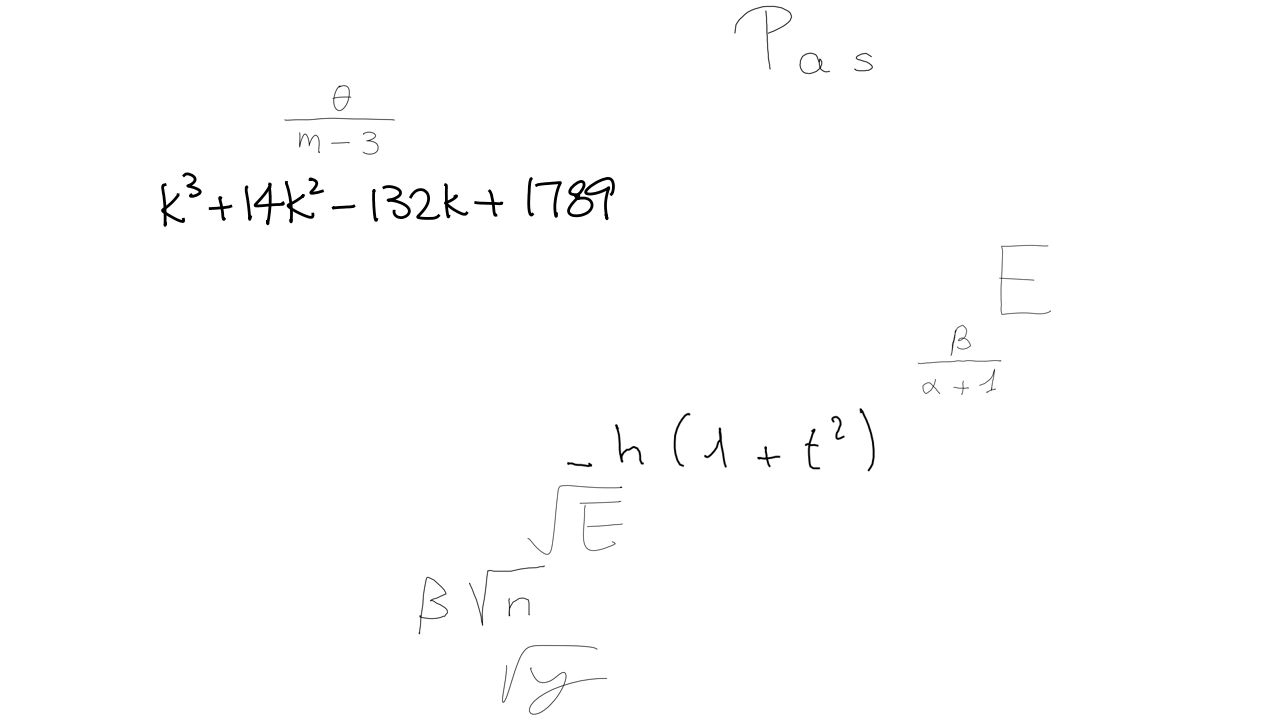 Pas
θ/(m - 3)
k³ + 14k² - 132k + 1789
E
β/(α + 1)
- h (1 + t²)
√E
β √n
√y